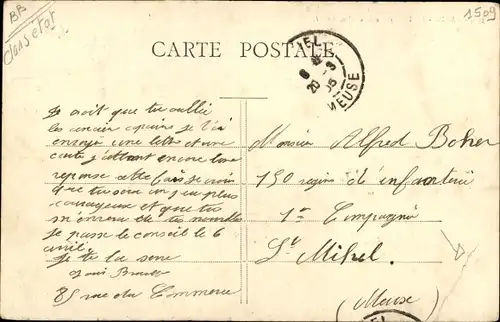 BB
1509
CARTE POSTALE
MEUSE
20 -3
05
Je croit que tu oublie
les ancien copains je t'ai
envoyé une lettre et une
carte j'attend encore ta
reponse cette fois je crois
que tu sera un peu plus
courageux et que tu
m'envera de tes nouvelles
je passe le conseil le 6
avril.
Je te la serre
85 rue du Commerce
Monsieur Alfred Boher
150 regim d'infanterie
1e Compagnie
St Mihel.
(Meuse)